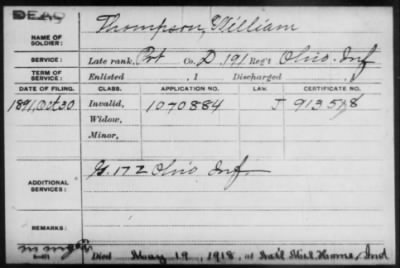 DEAD
NAME OF SOLDIER: Thompson, William
SERVICE: Late rank, Pvt Co. D, 191 Reg't Ohio Inf
TERM OF SERVICE: Enlisted , 1 Discharged , 1
DATE OF FILING. CLASS. APPLICATION NO. LAW. CERTIFICATE NO.
1891, Oct 30 Invalid, 1070884 J 913578
Widow,
Minor,
ADDITIONAL SERVICES: G. 172 Ohio Inf
REMARKS:
Died May 19, 1918, at Nat'l Mil. Home, Ind